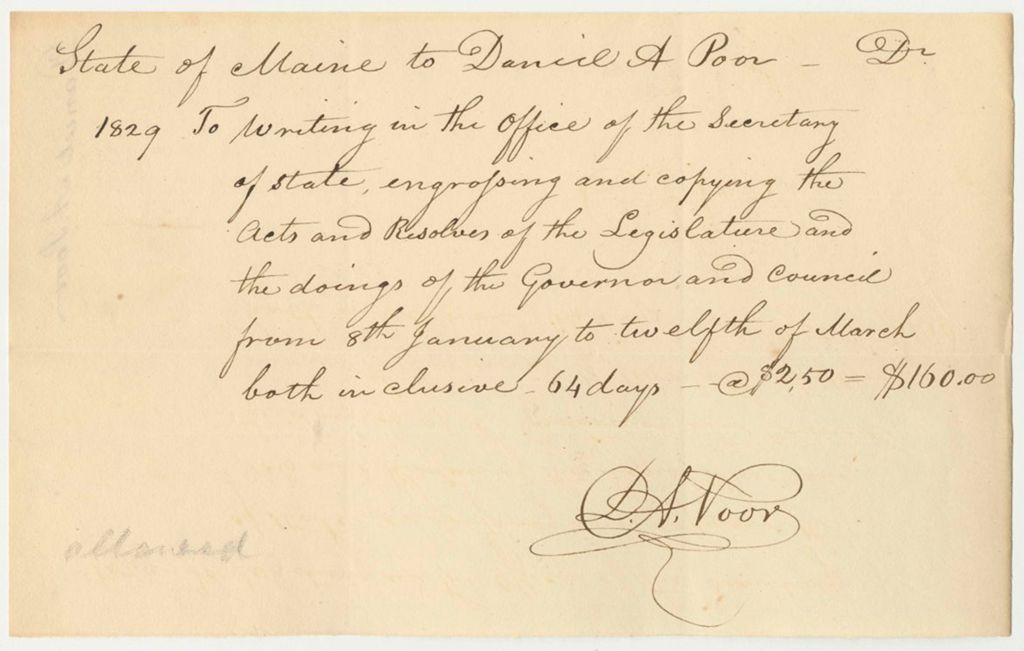 State of Maine to Daniel A Poor - Dr
1829 To Writing in the Office of the Secretary
of state, engrossing and copying the
Acts and Resolves of the Legislature and
the doings of the Governor and Council
from 8th January to twelfth of March
both inclusive - 64 days - @ $2,50 = $160.00
D. A. Poor
allowed